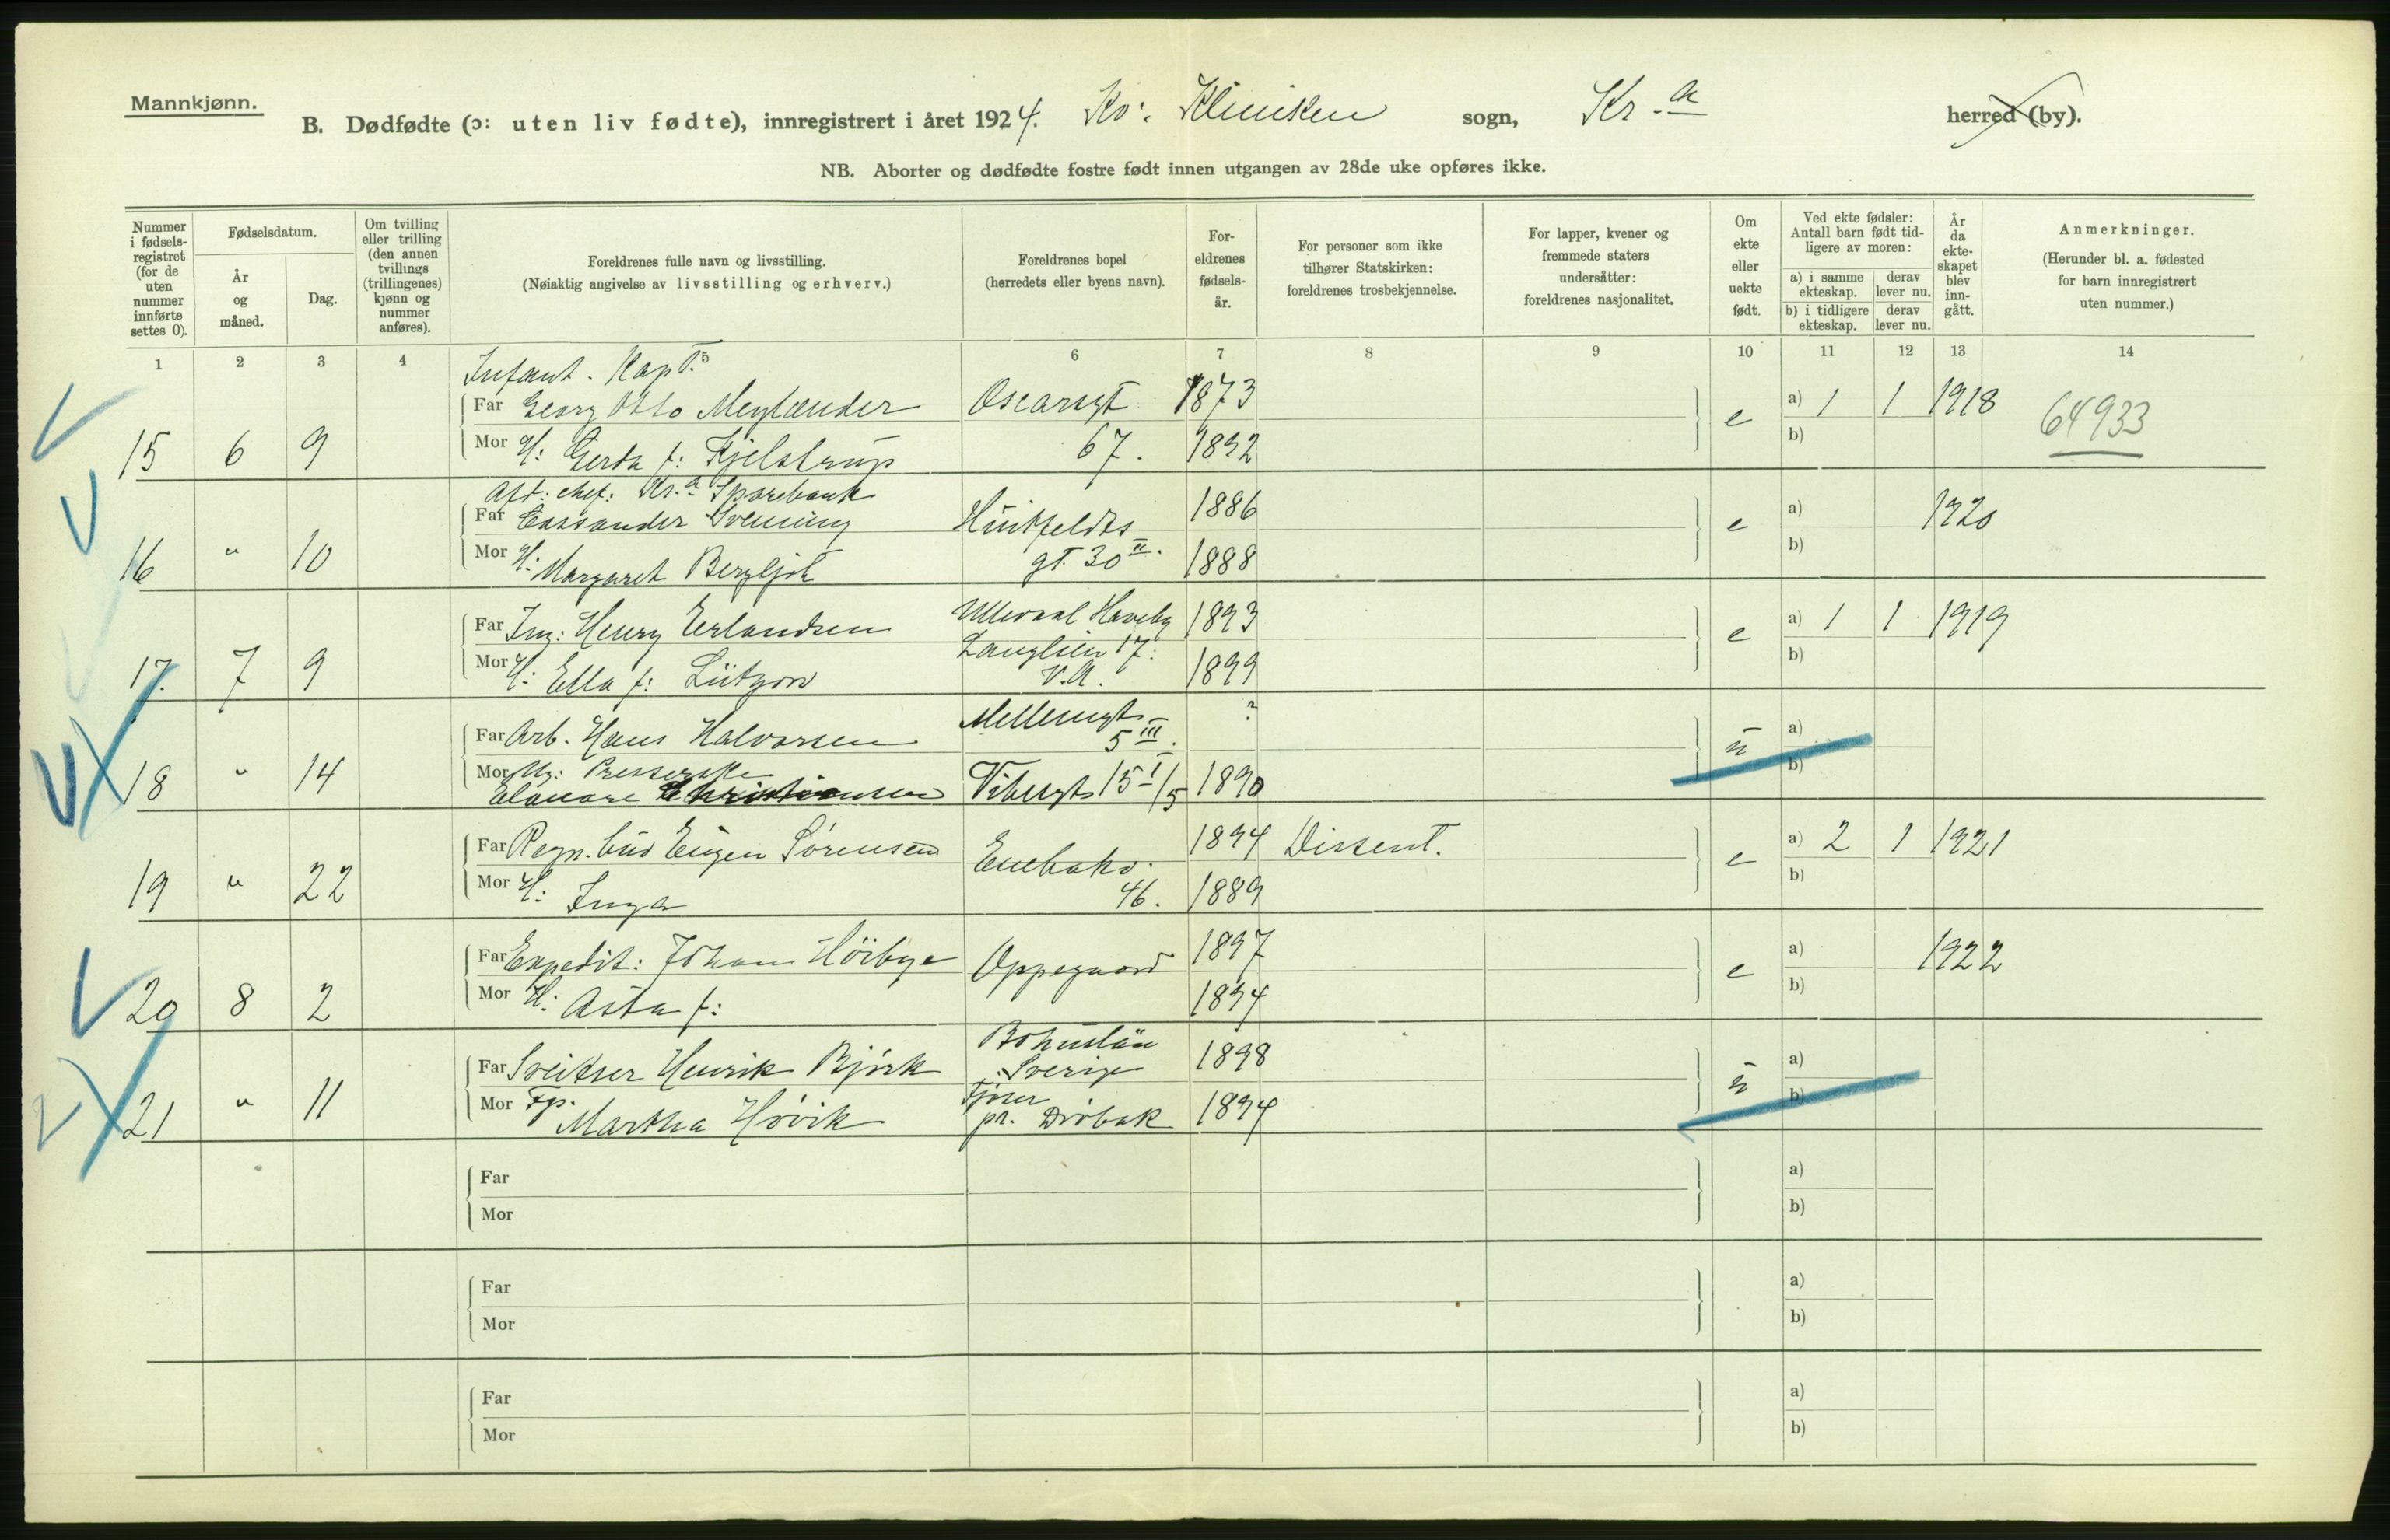 Mannkjønn.
B. Dødfødte (ɔ: uten liv fødte), innregistrert i året 1924. Kv: Klinikken sogn, Kr.a herred (by).
NB. Aborter og dødfødte fostre født innen utgangen av 28de uke opføres ikke.
Nummer i fødsels- registret (for de uten nummer innførte settes 0).
Fødselsdatum.
År og måned.
Dag.
Om tvilling eller trilling (den annen tvillings (trillingenes) kjønn og nummer anføres).
Foreldrenes fulle navn og livsstilling.
(Nøiaktig angivelse av livsstilling og erhverv.)
Foreldrenes bopel
(herredets eller byens navn).
For- eldrenes fødsels- år.
For personer som ikke tilhører Statskirken: foreldrenes trosbekjennelse.
For lapper, kvener og fremmede staters undersåtter: foreldrenes nasjonalitet.
Om ekte eller uekte født.
Ved ekte fødsler: Antall barn født tid- ligere av moren:
a) i samme ekteskap. derav lever nu.
b) i tidligere ekteskap. derav lever nu.
År da ekte- skapet blev inn- gått.
Anmerkninger.
(Herunder bl. a. fødested for barn innregistrert uten nummer.)
1 2 3 4 5 6 7 8 9 10 11 12 13 14
Infant. Kapt.
Far Georg Otto Meylænder Oscarsgt 1873 a) 1 1 1918
15 6 9 Mor H: Gerda f: Kjelstrup 67. 1892 e b) 64933
Afd: chef: Kr.a Sparebank
Far Cassander Svenning Huitfeldts 1886 a) 1920
16 " 10 Mor H: Margaret Bergljot gt. 30 II. 1888 e b)
Far Ing: Henry Erlandsen Ullevaal Haveby 1893 a) 1 1 1919
17. 7 9 Mor H: Ella f: Lützow Langlien 17: V.A. 1899 e b)
Far Arb. Hans Halvorsen Møllergt 5 III. ? a)
18 " 14 Mor Ug: Presserske Vibesgt 15 I/5 1890 ü b)
Elanore Christiansen
Far Regn. bud Eugen Sørensen Enebakv. 1894 Dissent. a) 2 1 1921
19 " 22 Mor H: Inga 46. 1889 e b)
Far Expedit: Johan Höibye Oppegaard 1897 a) 1922
20 8 2 Mor H: Asta f: 1894 e b)
Far Sveitser Henrik Björk Bohuslän Sverige 1898 a)
21 " 11 Mor Tjp. Martha Hövik pr. Drøbak 1894 ü b)
Far a)
Mor b)
Far a)
Mor b)
Far a)
Mor b)